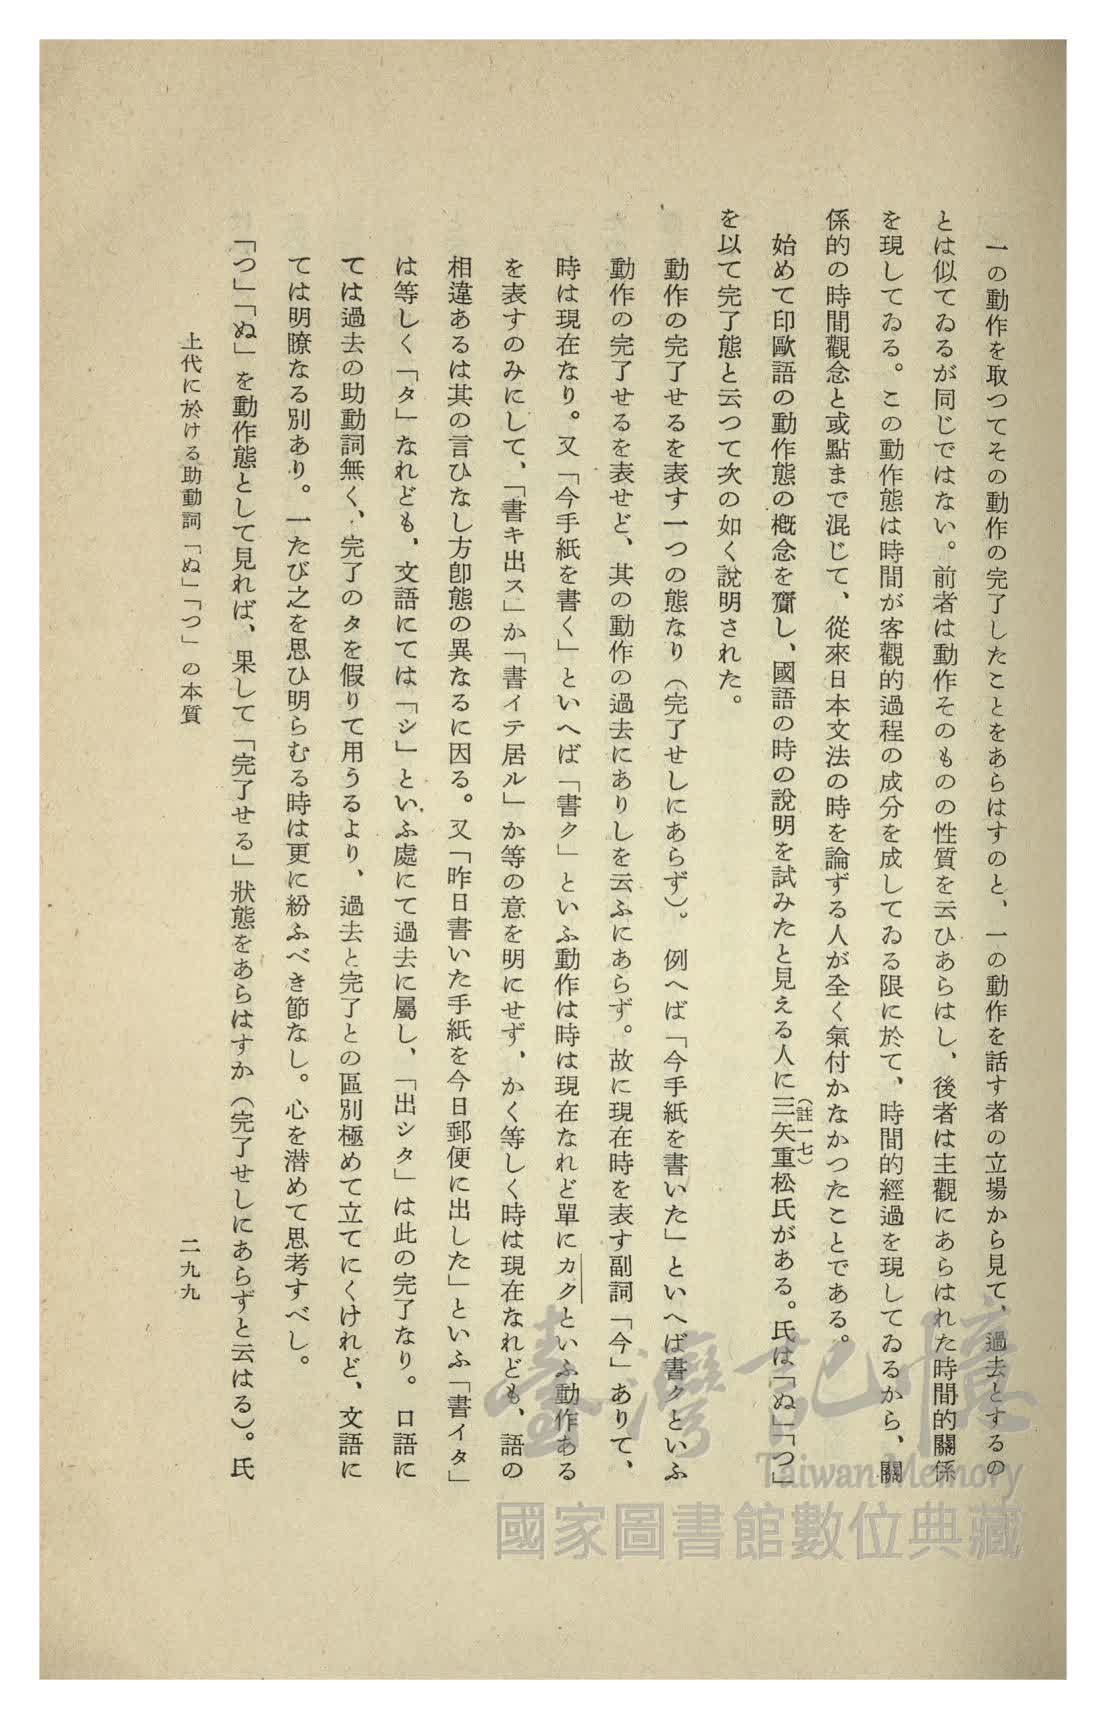 一の動作を取つてその動作の完了したことをあらはすのと、一の動作を話す者の立場から見て、過去とするの
とは似てゐるが同じではない。前者は動作そのものの性質を云ひあらはし、後者は主觀にあらはれた時間的關係
を現してゐる。この動作態は時間が客觀的過程の成分を成してゐる限に於て、時間的經過を現してゐるから、關
係的の時間觀念と或點まで混じて、從來日本文法の時を論ずる人が全く氣付かなかつたことである。
始めて印歐語の動作態の槪念を齎し、國語の時の說明を試みたと見える人に三矢重松氏がある。氏は「ぬ」「つ」
(註一七)
を以て完了態と云つて次の如く說明された。
動作の完了せるを表す一つの態なり（完了せしにあらず）。例へば「今手紙を書いた」といへば書クといふ
動作の完了せるを表せど、其の動作の過去にありしを云ふにあらず。故に現在時を表す副詞「今」ありて、
時は現在なり。又「今手紙を書く」といへば「書ク」といふ動作は時は現在なれど單にカクといふ動作ある
を表すのみにして、「書キ出ス」か「書イテ居ル」か等の意を明にせず、かく等しく時は現在なれども、語の
相違あるは其の言ひなし方卽態の異なるに因る。又「昨日書いた手紙を今日郵便に出した」といふ「書イタ」
は等しく「タ」なれども、文語にては「シ」といふ處にて過去に屬し、「出シタ」は此の完了なり。口語に
ては過去の助動詞無く、完了のタを假りて用うるより、過去と完了との區別極めて立てにくけれど、文語に
ては明瞭なる別あり。一たび之を思ひ明らむる時は更に紛ふべき節なし。心を潜めて思考すべし。
「つ」「ぬ」を動作態として見れば、果して「完了せる」狀態をあらはすか（完了せしにあらずと云はる）。氏
上代に於ける助動詞「ぬ」「つ」の本質
二九九
臺灣記憶
Taiwan Memory
國家圖書館數位典藏